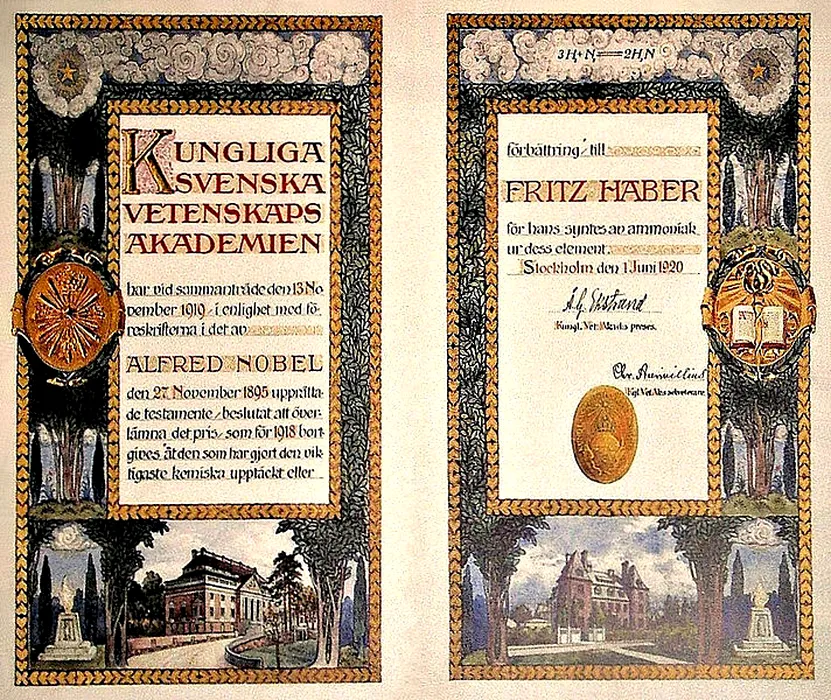 KUNGLIGA
SVENSKA
VETENSKAPS
AKADEMIEN
har vid sammanträde den 13 No
vember 1919 i enlighet med fö-
reskrifterna i det av
ALFRED NOBEL
den 27 November 1895 upprätta-
de testamente beslutat att över-
lämna det pris som för 1918 bort-
gives åt den som har gjort den vik-
tigaste kemiska upptäckt eller
3H₂+N₂ 2H₃N
förbättring till
FRITZ HABER
för hans syntes av ammoniak
ur dess element.
Stockholm den 1 Juni 1920
Å.G. Ekstrand
Kungl. Vet. Akad:s preses.
Chr. Aurivillius
Kgl. Vet. Aks sekreterare.